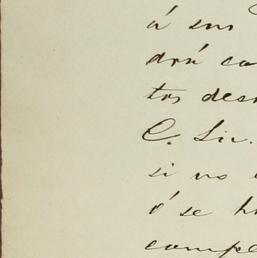 á sus
drá co
tos des
C. Lic.
si no
ó se h
compe